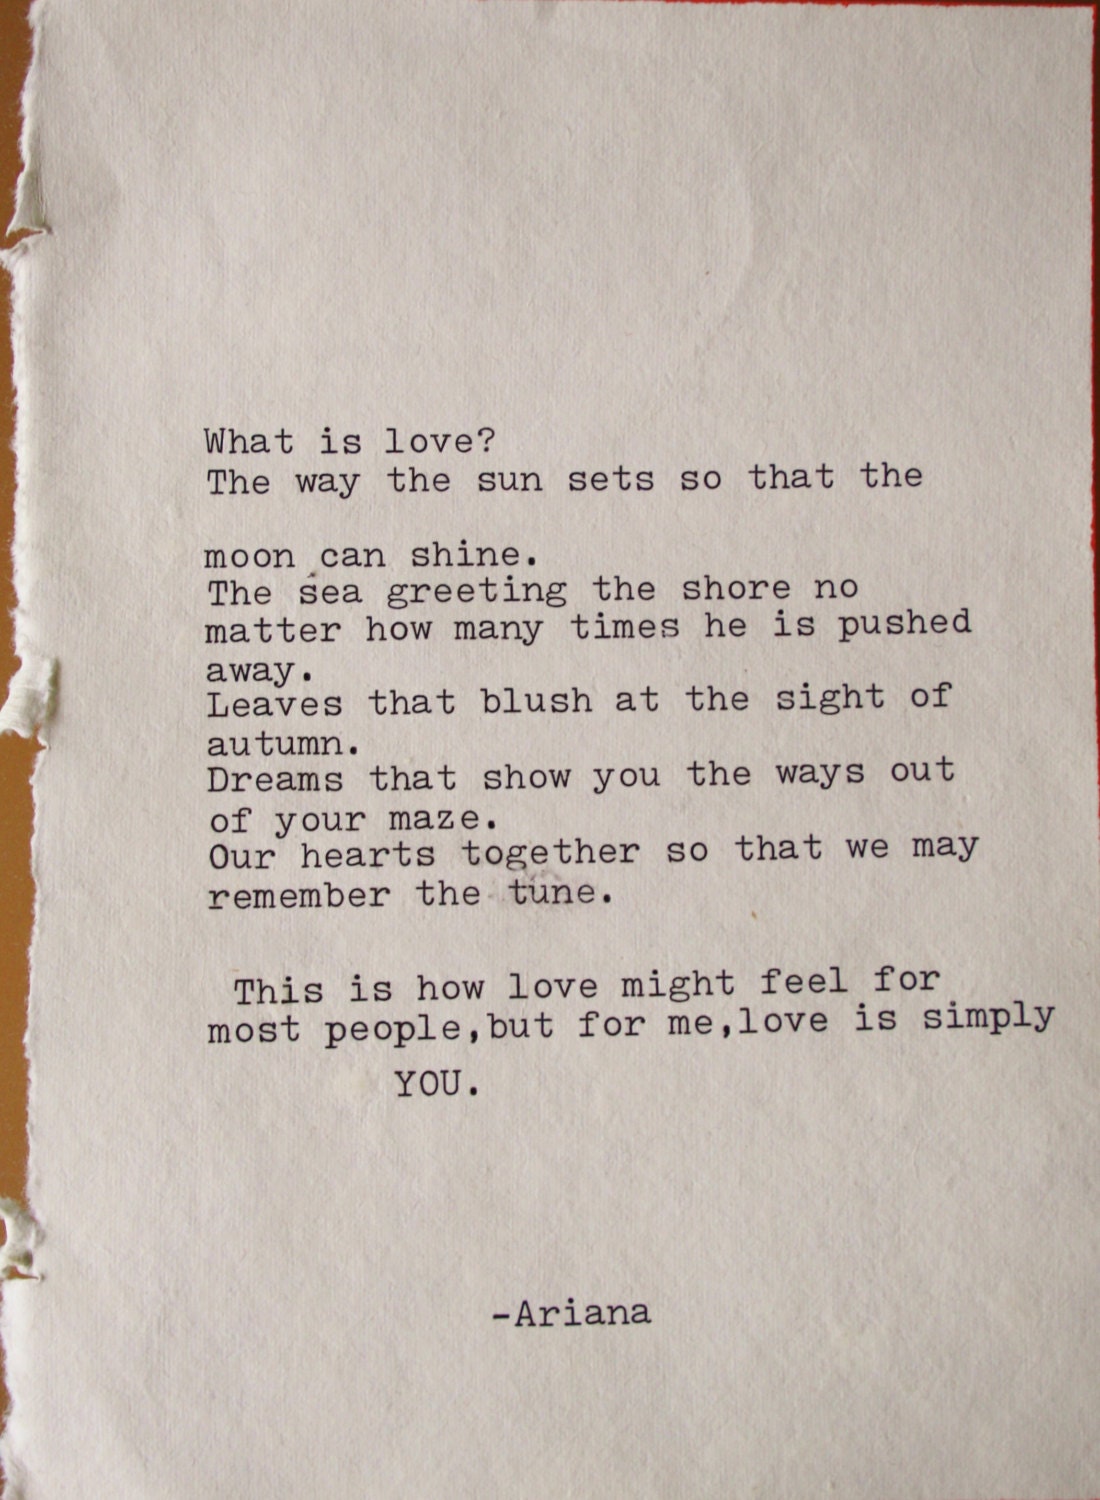 What is love?
The way the sun sets so that the
moon can shine.
The sea greeting the shore no
matter how many times he is pushed
away.
Leaves that blush at the sight of
autumn.
Dreams that show you the ways out
of your maze.
Our hearts together so that we may
remember the tune.
This is how love might feel for
most people,but for me,love is simply
YOU.
-Ariana